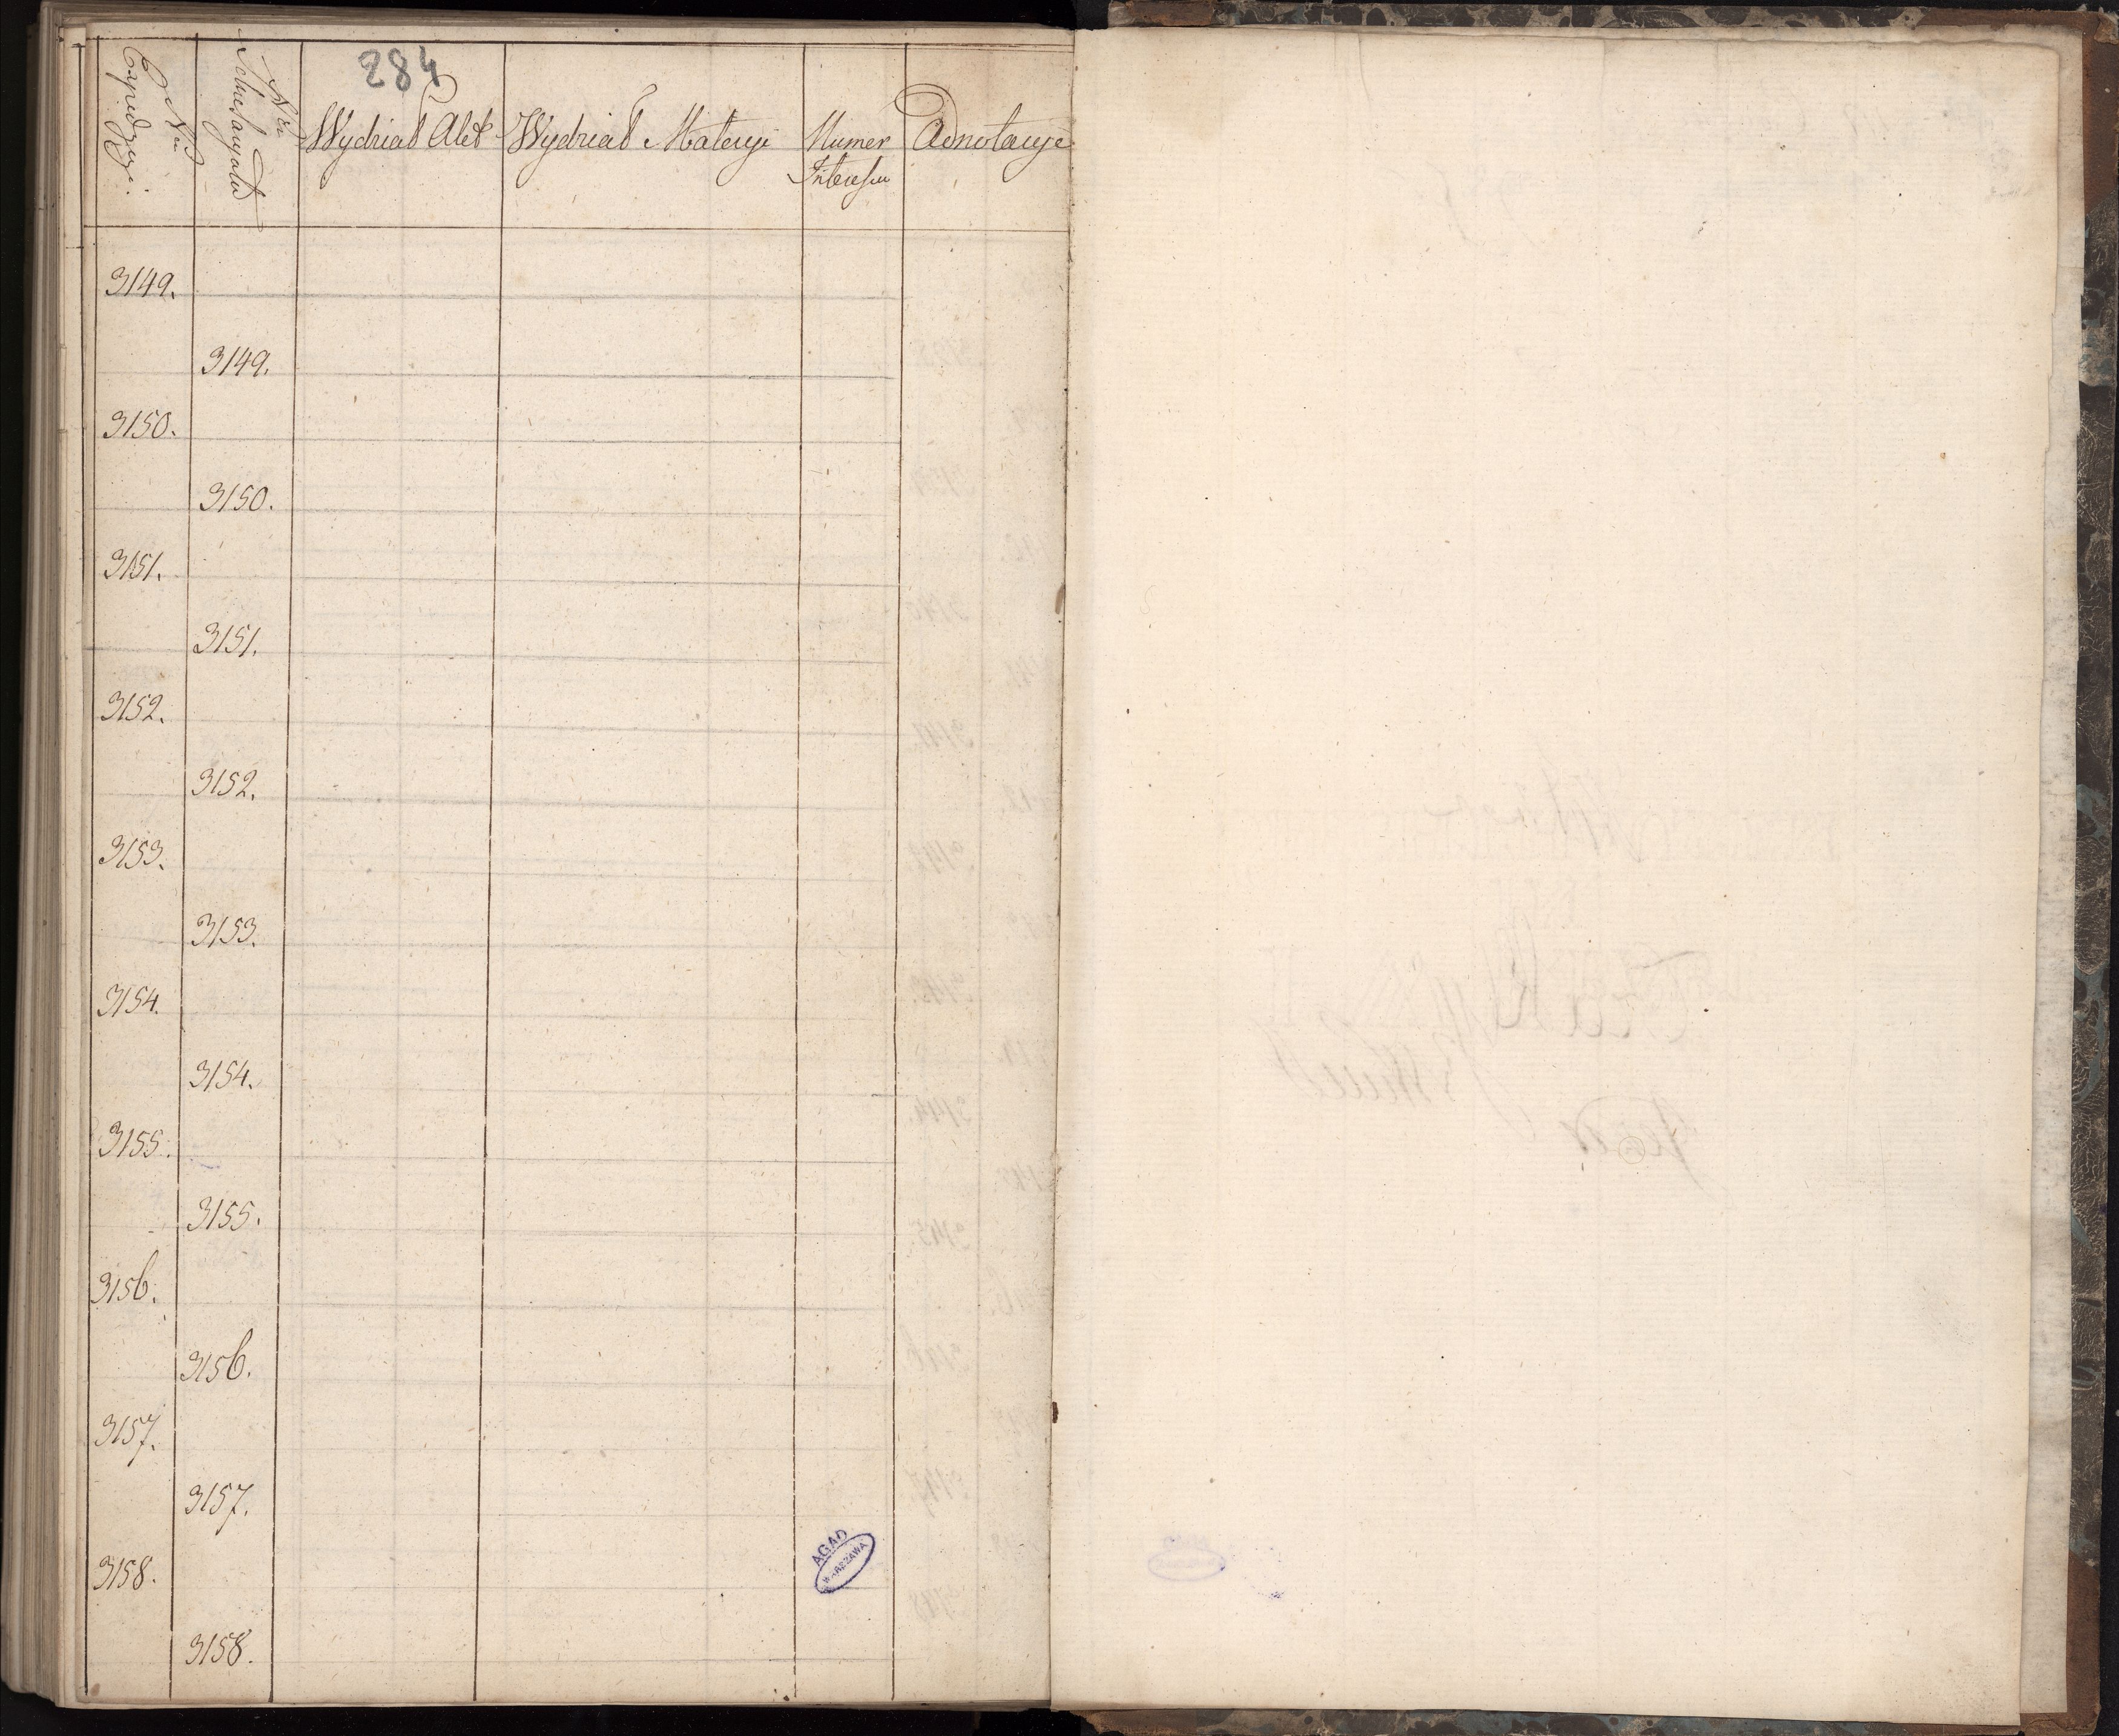 284
Nru
Expedycyi.
Nru
Wydział Akt
Wydział Materyi
Numer
Interesu
Adnotacye
3149.
3149.
3150.
3150.
3151.
3151.
3152.
3152.
3153.
3153.
3154.
3154.
3155.
3155.
3156.
3156.
3157.
3157.
3158.
3158.
AGAD
WARSZAWA